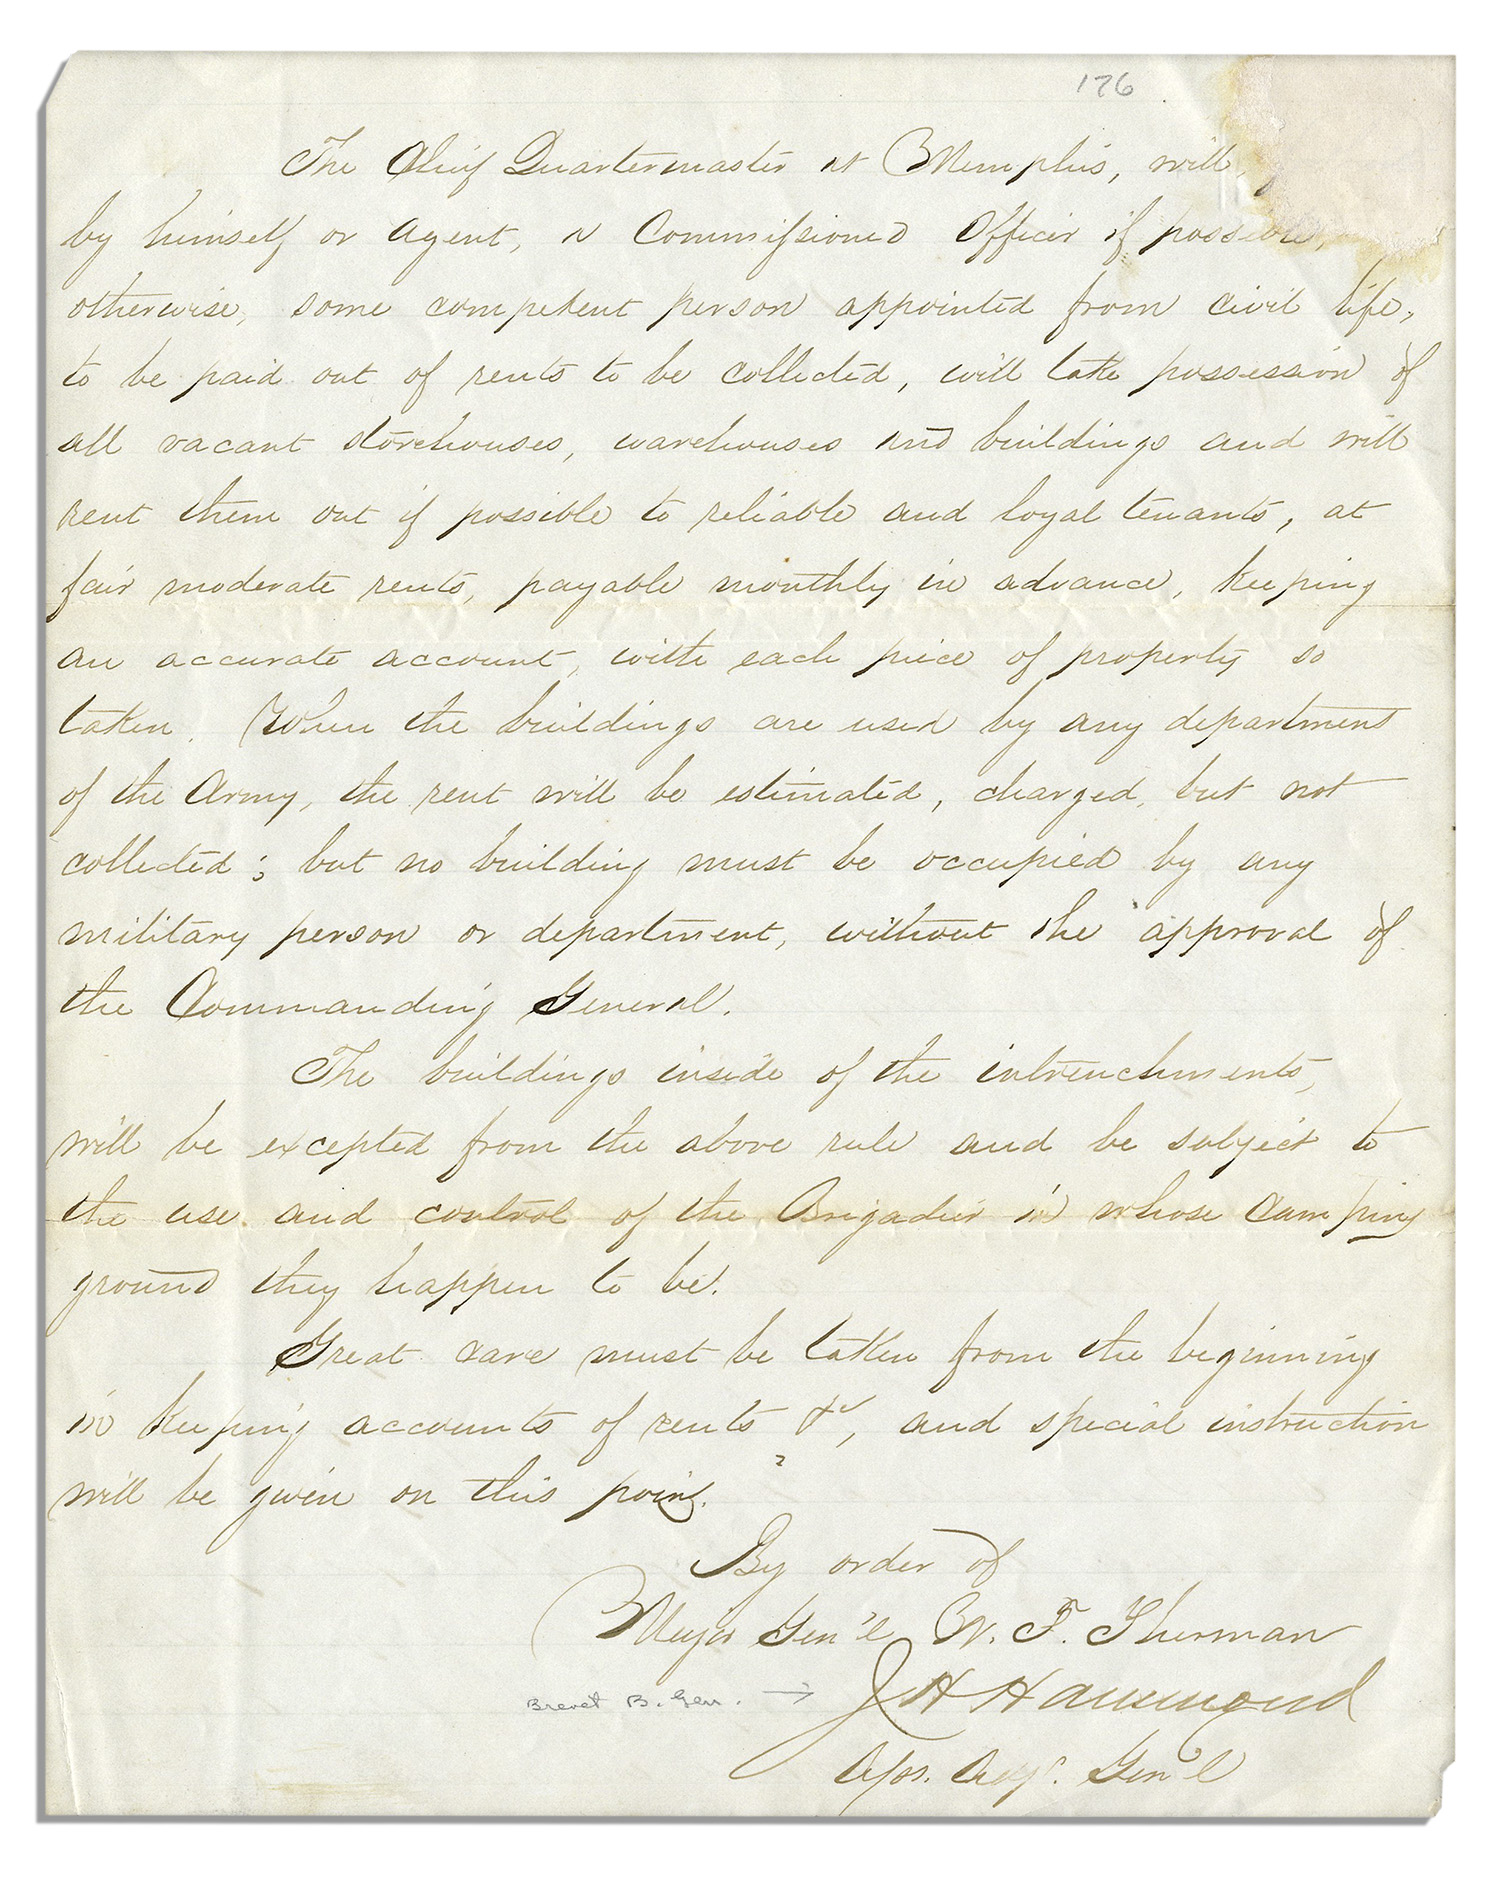 176
The Chief Quartermaster at Memphis, will,
by himself or Agent, a Commissioned Officer if possible,
otherwise, some competent person appointed from civil life,
to be paid out of rents to be collected, will take possession of
all vacant storehouses, warehouses and buildings and will
rent them out if possible to reliable and loyal tenants, at
fair moderate rents, payable monthly in advance, keeping
an accurate account, with each piece of property so
taken. When the buildings are used by any department
of the Army, the rent will be estimated, charged, but not
collected; but no building must be occupied by any
military person or department, without the approval of
the Commanding General.
The buildings inside of the intrenchments,
will be excepted from the above rule and be subject to
the use and control of the Brigadier in whose camping
ground they happen to be.
Great care must be taken from the beginning
in keeping accounts of rents &c, and special instruction
will be given on this point.
By order of
Major Gen'l W. T. Sherman
Brevet B. Gen. → J H Hammond
Ass. Adj. Gen'l